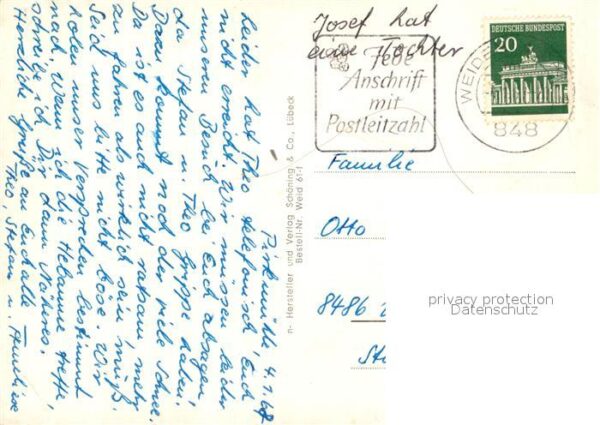 Josef hat
eine Tochter
DEUTSCHE BUNDESPOST
20
WEIDE
848
Jede
Anschrift
mit
Postleitzahl
Familie
Otto
8486
St
privacy protection
Datenschutz
n- Hersteller und Verlag Schöning & Co., Lübeck
Bestell-Nr. Weid 61-f
4.1.68
Leider hat Theo telefonisch Euch
nicht erreicht. Wir müssen leider
unseren Besuch bei Euch absagen,
da Stefan u. Theo Grippe haben.
Dazu kommt noch der viele Schnee.
Da ist es auch nicht ratsam, mehr
zu fahren als wirklich sein muß.
Seid uns bitte nicht böse. Wir
holen unser Versprochen bestimmt
nach. Wenn ich die Hebamme treffe,
schreibe ich Dir dann Näheres.
Herzliche Grüße an Euch alle
Theo, Stefan u.